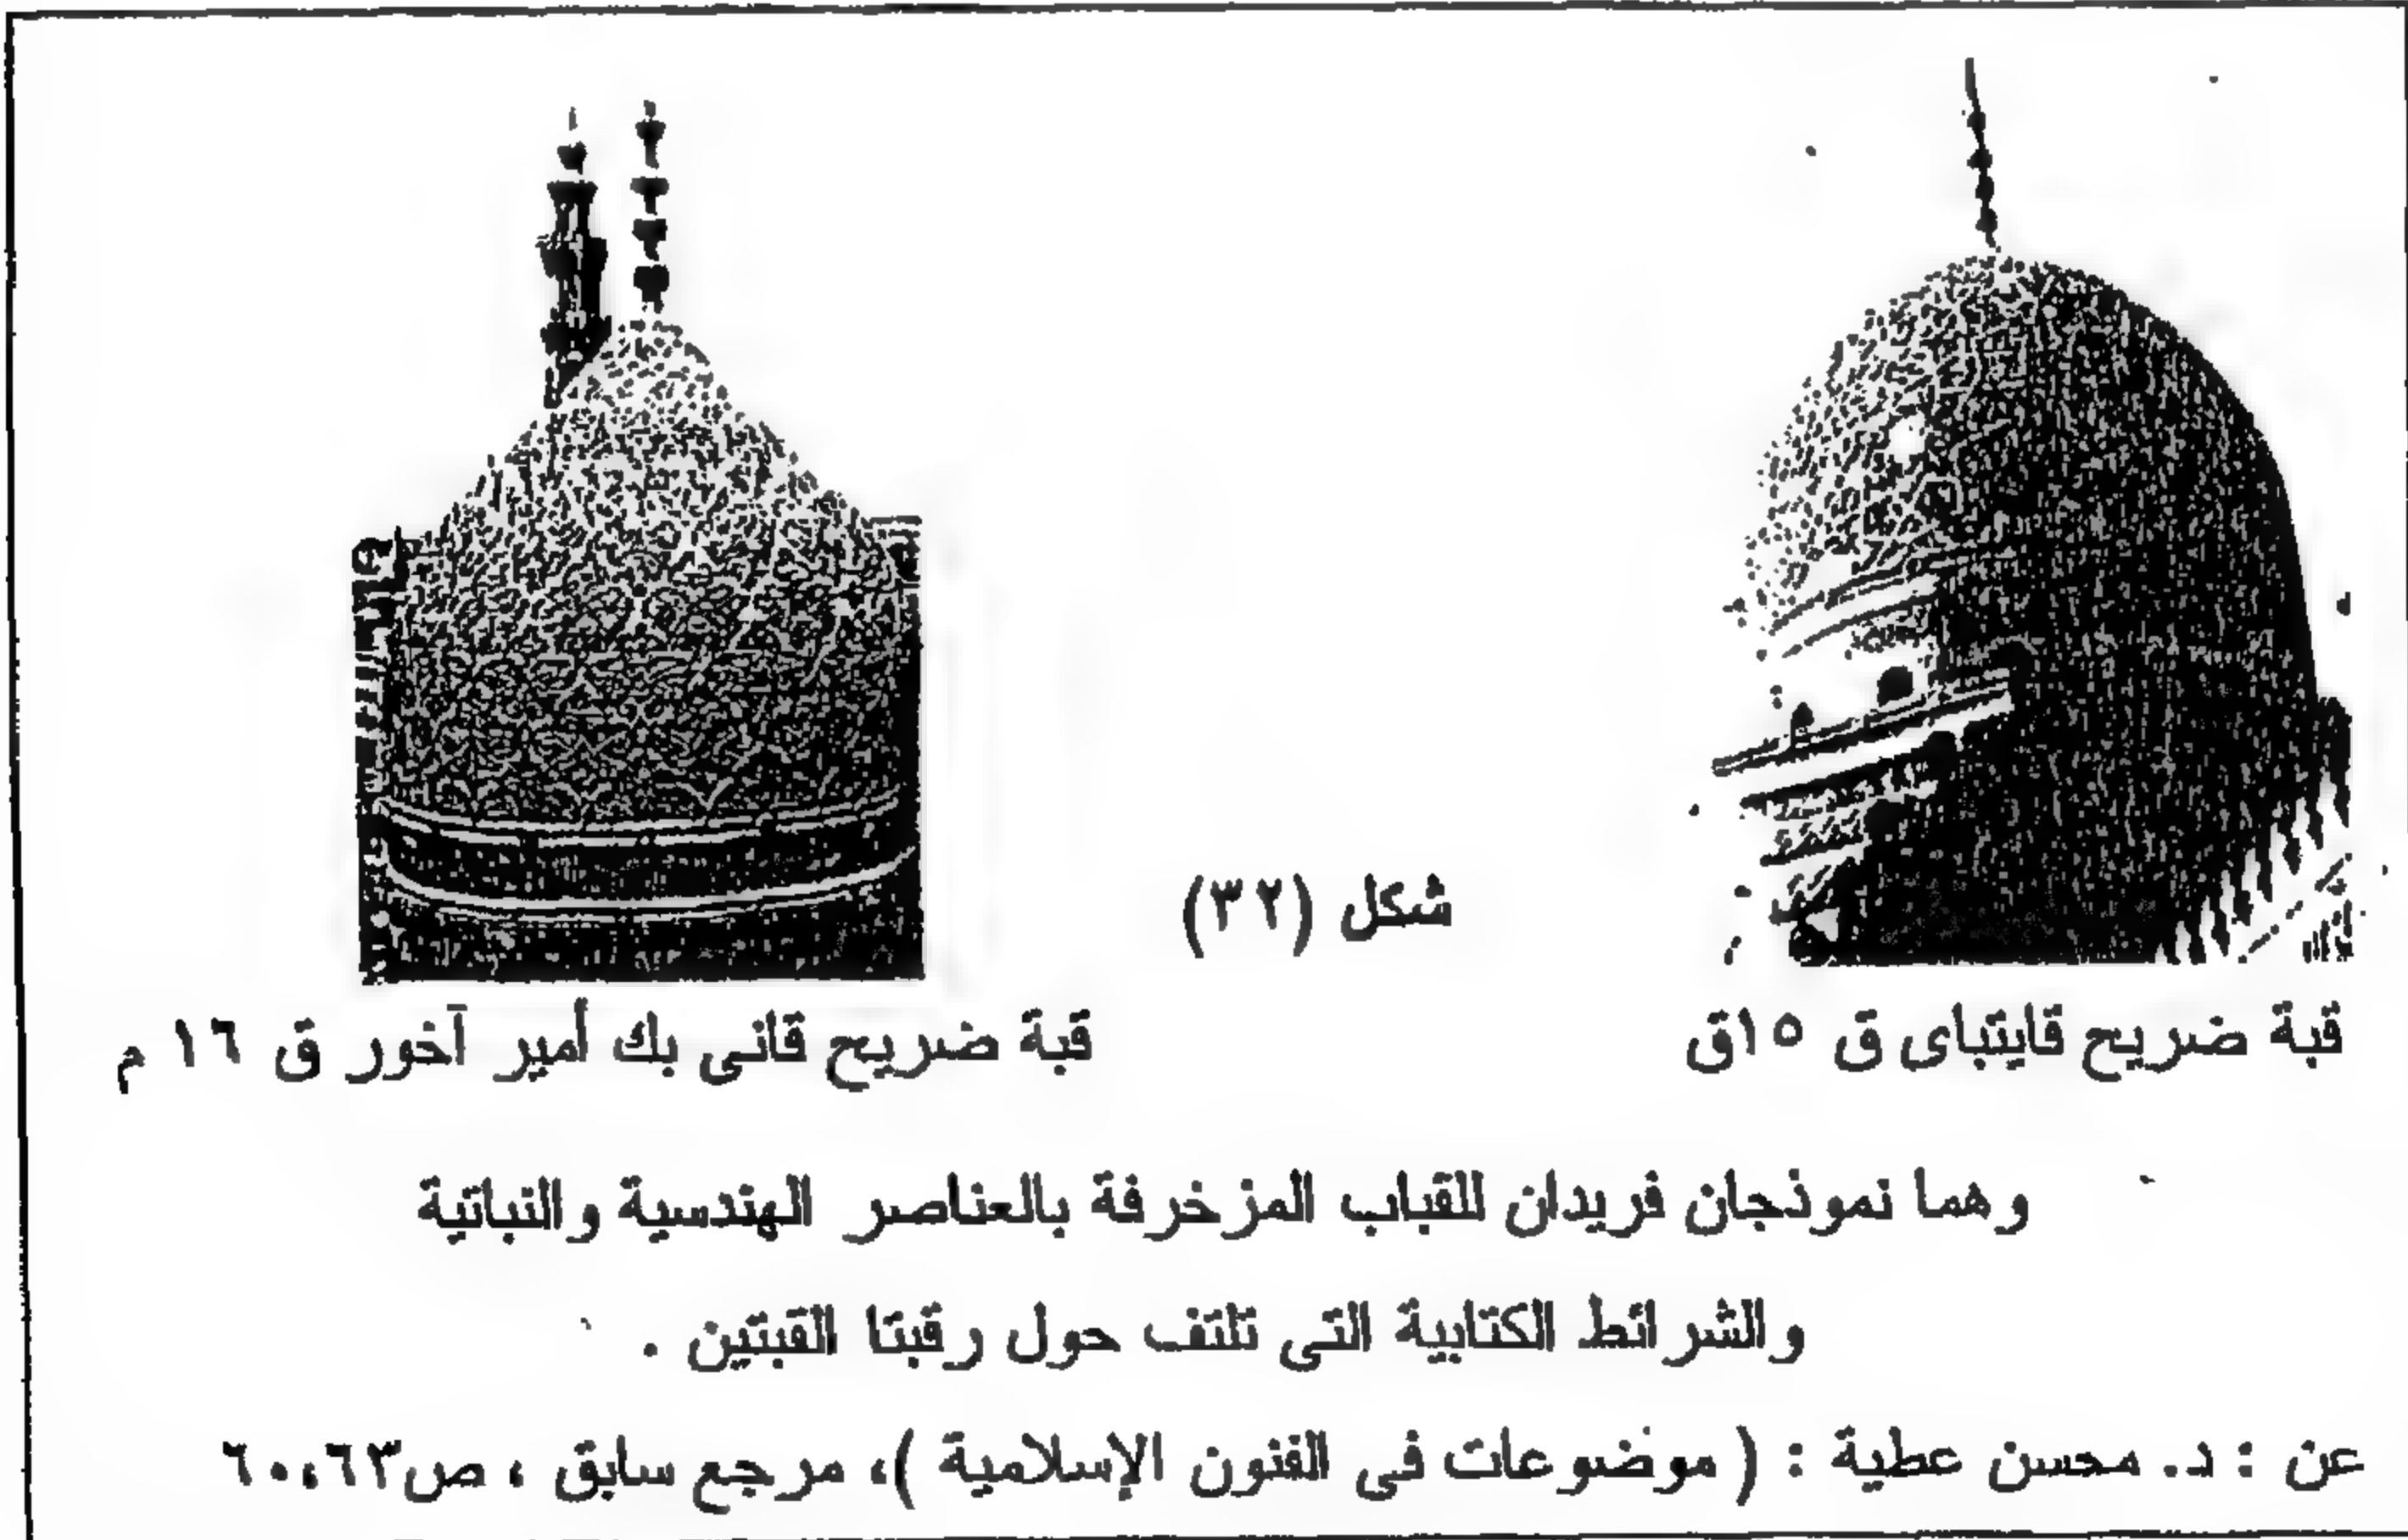 شكل (٣٢)
قبة ضريح قايتباى ق ١٥ق
قبة ضريح قانى بك أمير آخور ق ١٦ م
وهما نموذجان فريدان للقباب المزخرفة بالعناصر الهندسية والنباتية
والشرائط الكتابية التى تلتف حول رقبتا القبتين .
عن : د. محسن عطية : ( موضوعات فى الفنون الإسلامية )، مرجع سابق ، ص٦٠،٦٣